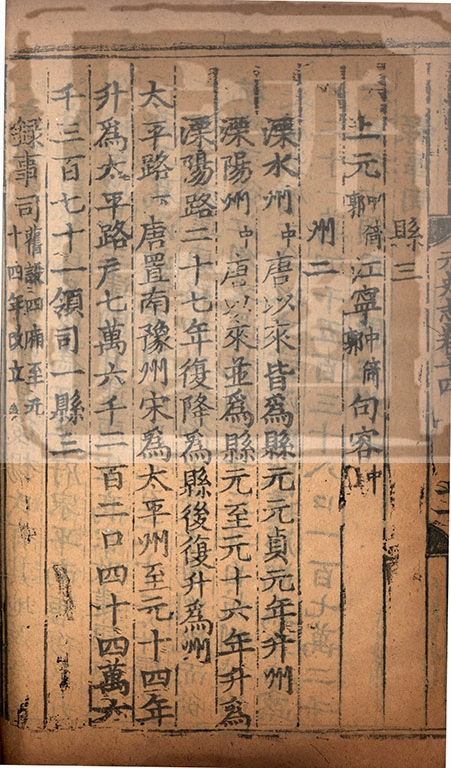 縣三
上元中倚郭江寧中倚郭句容中
州二
溧水州中唐以來皆爲縣元元貞元年升州
溧陽州中唐以來並爲縣元至元十六年升爲
溧陽路二十七年復降爲縣後復升爲州
太平路下唐置南豫州宋爲太平州至元十四年
升爲太平路戶七萬六千二百二口四十四萬六
千三百七十一領司一縣三
錄事司舊設四廂至元十四年改立